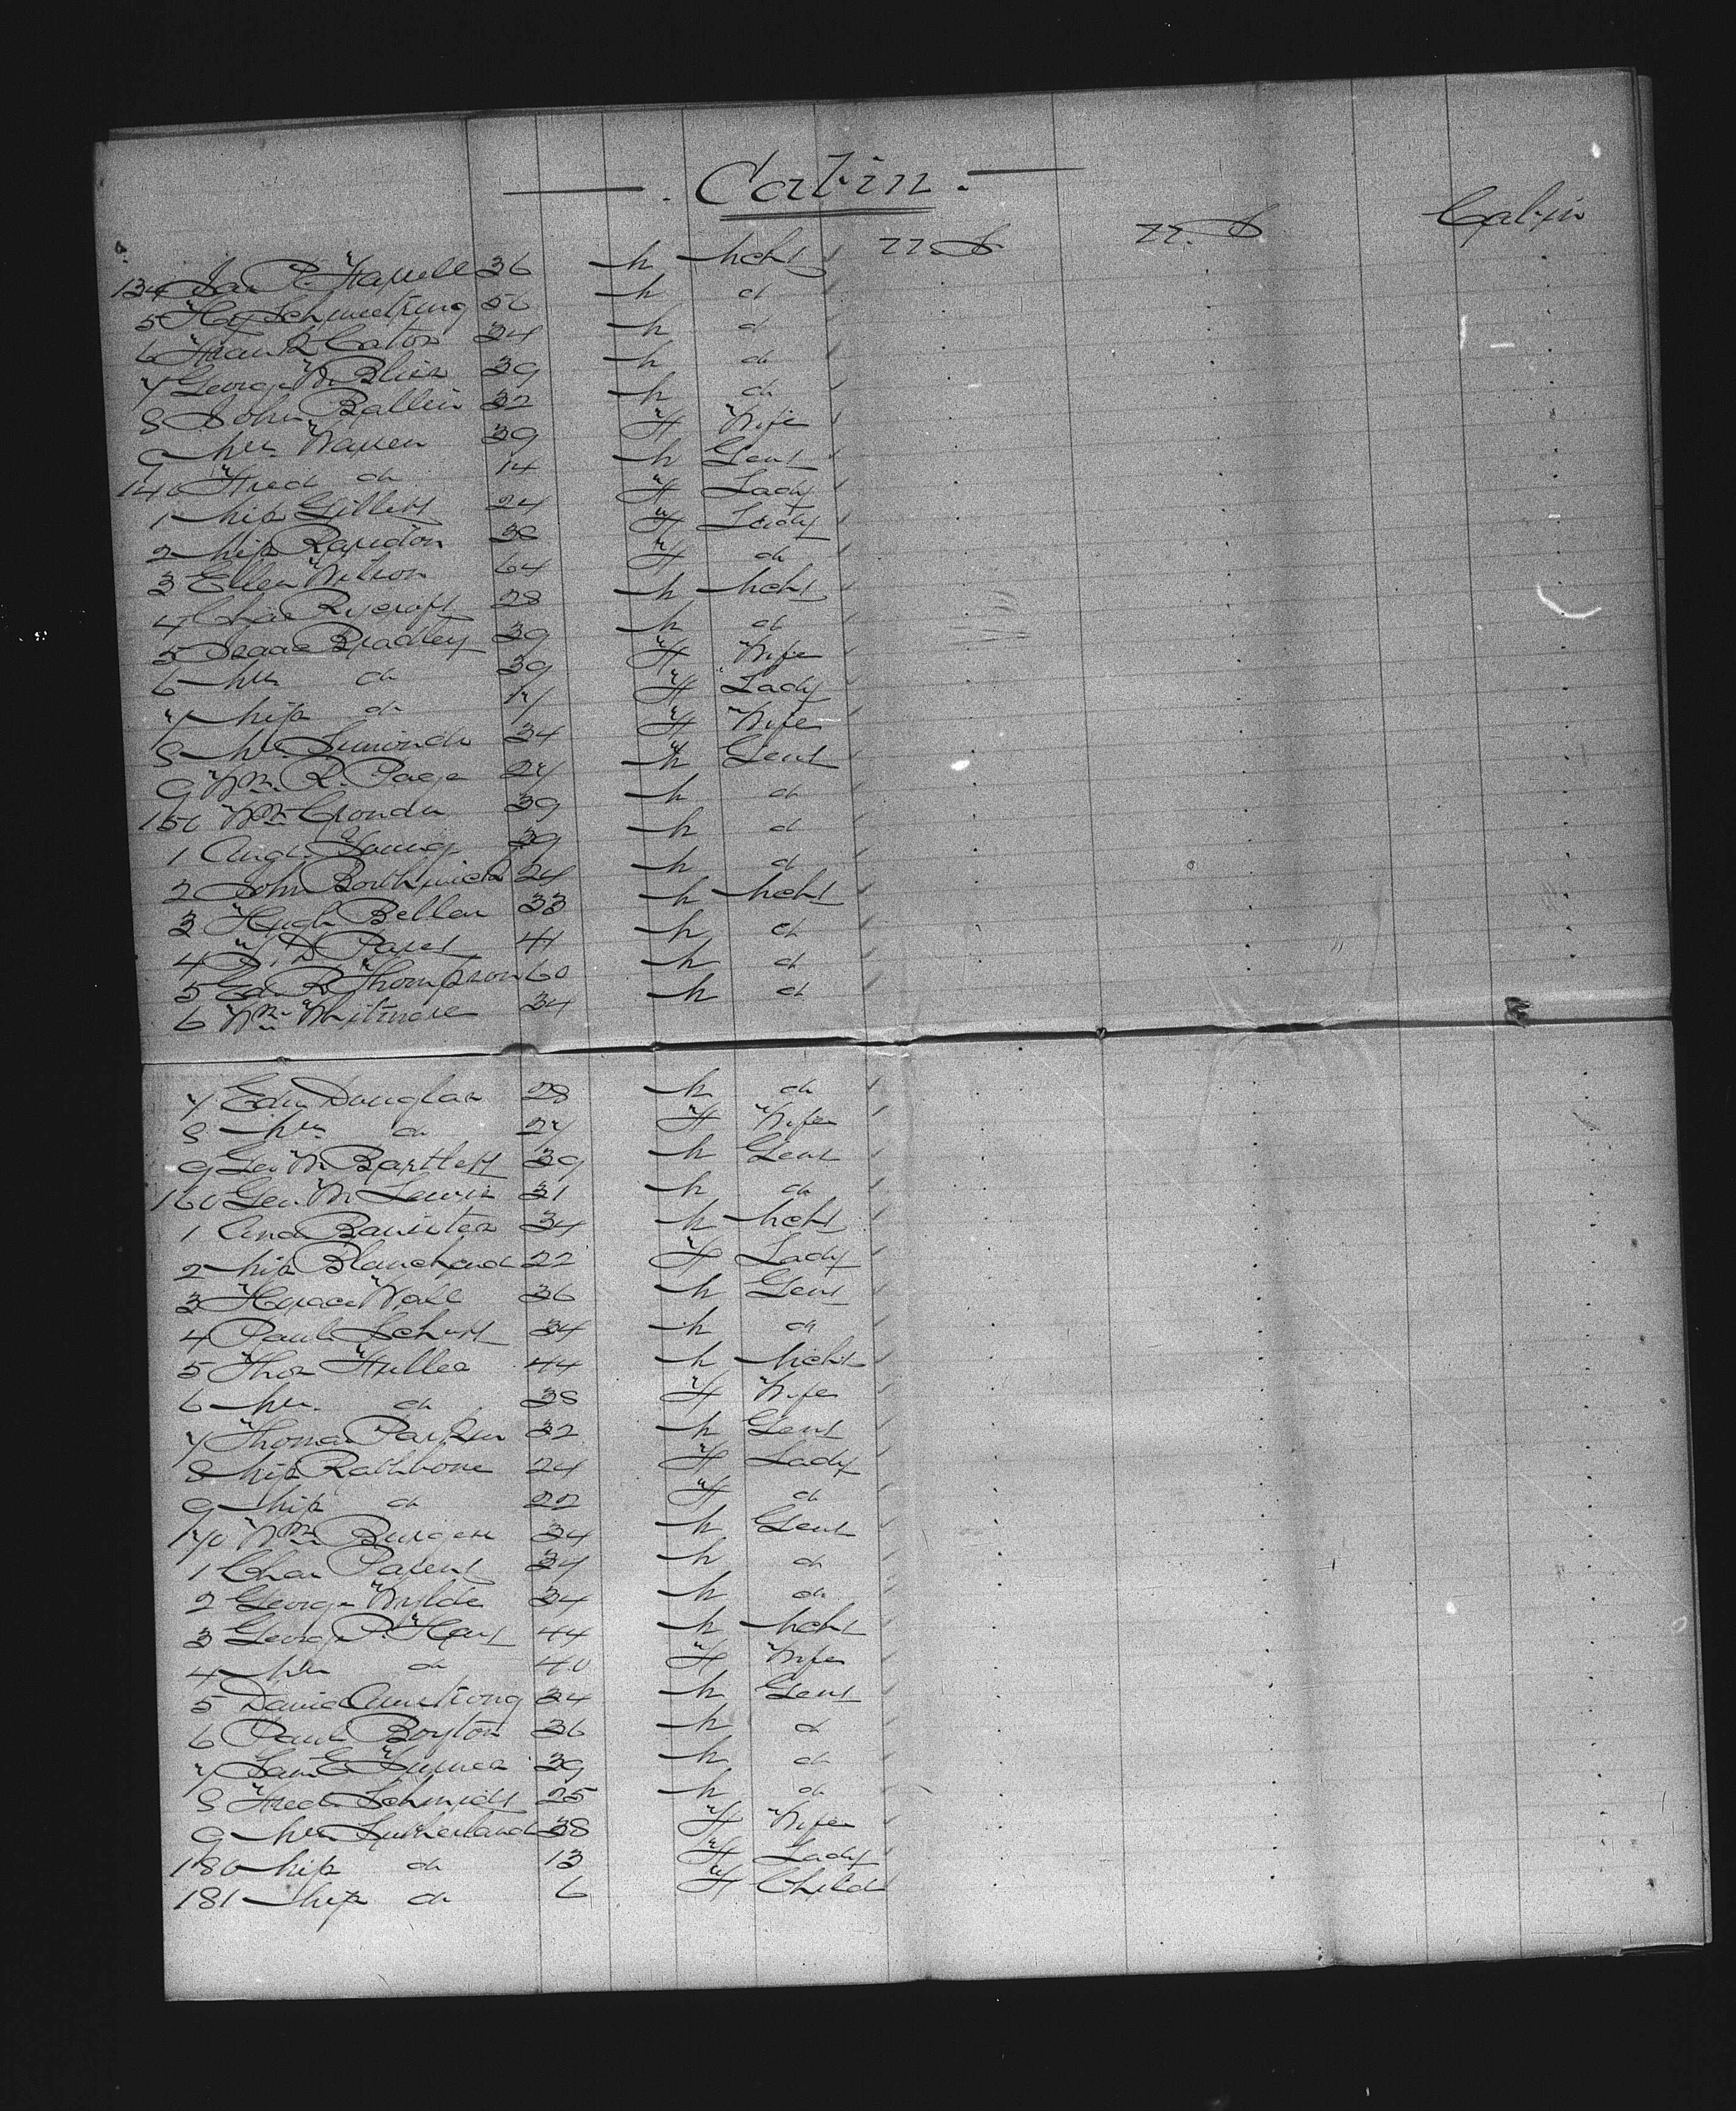 Cabin
134 Jas R. Farrell 36 M Mcht U S U. S Cabin
5 Hy Schmeltzing 50 M do
6 Frank Caton 34 M do
7 George W Blinn 39 M do
8 John Ballin 32 M do
9 Mrs Warren 39 F Wife
140 Fred do 14 M Gent
1 Miss Gillett 24 F Lady
2 Miss 38 F Lady
3 Ellen Wilson 64 F do
4 Chas Rycroft 28 M Mcht
5 Isaac Bradley 39 M do
6 Mrs do 39 F Wife
7 Miss do 17 F Lady
8 Mrs Simonds 34 F Wife
9 Wm. R. Page 27 M Gent
150 Wm 39 M do
1 Aug. Young 29 M do
2 John Borthwick 24 M do
3 Hugh Bellas 33 M Mcht
4 D 41 M do
5 Ed R Thompson 60 M do
6 Wm Whitmore 34 M do
7 Edw Douglas 28 M do
8 Mrs do 27 F Wife
9 Geo W Bartlett 39 M Gent
160 Geo. W Lewis 31 M do
1 And Banister 34 M Mcht
2 Miss Blanchard 22 F Lady
3 Horace Wall 36 M Gent
4 Paul Schutt 34 M do
5 Thos Fuller 44 M Mcht
6 Mrs. do 38 F Wife
7 Thomas Parker 32 M Gent
8 Miss Rathbone 24 F Lady
9 Miss do 22 F do
170 Wm Burgess 34 M Gent
1 Chas Parent 34 M do
2 George Wylde 34 M do
3 George P Hart 44 M Mcht
4 Mrs do 40 F Wife
5 David Armstrong 34 M Gent
6 Paul Boyton 36 M do
7 Sam E 39 M do
8 Fred Schmidt 25 M do
9 Mrs Sutherland 38 F Wife
180 Miss do 13 F Lady
181 Miss do 6 F Child